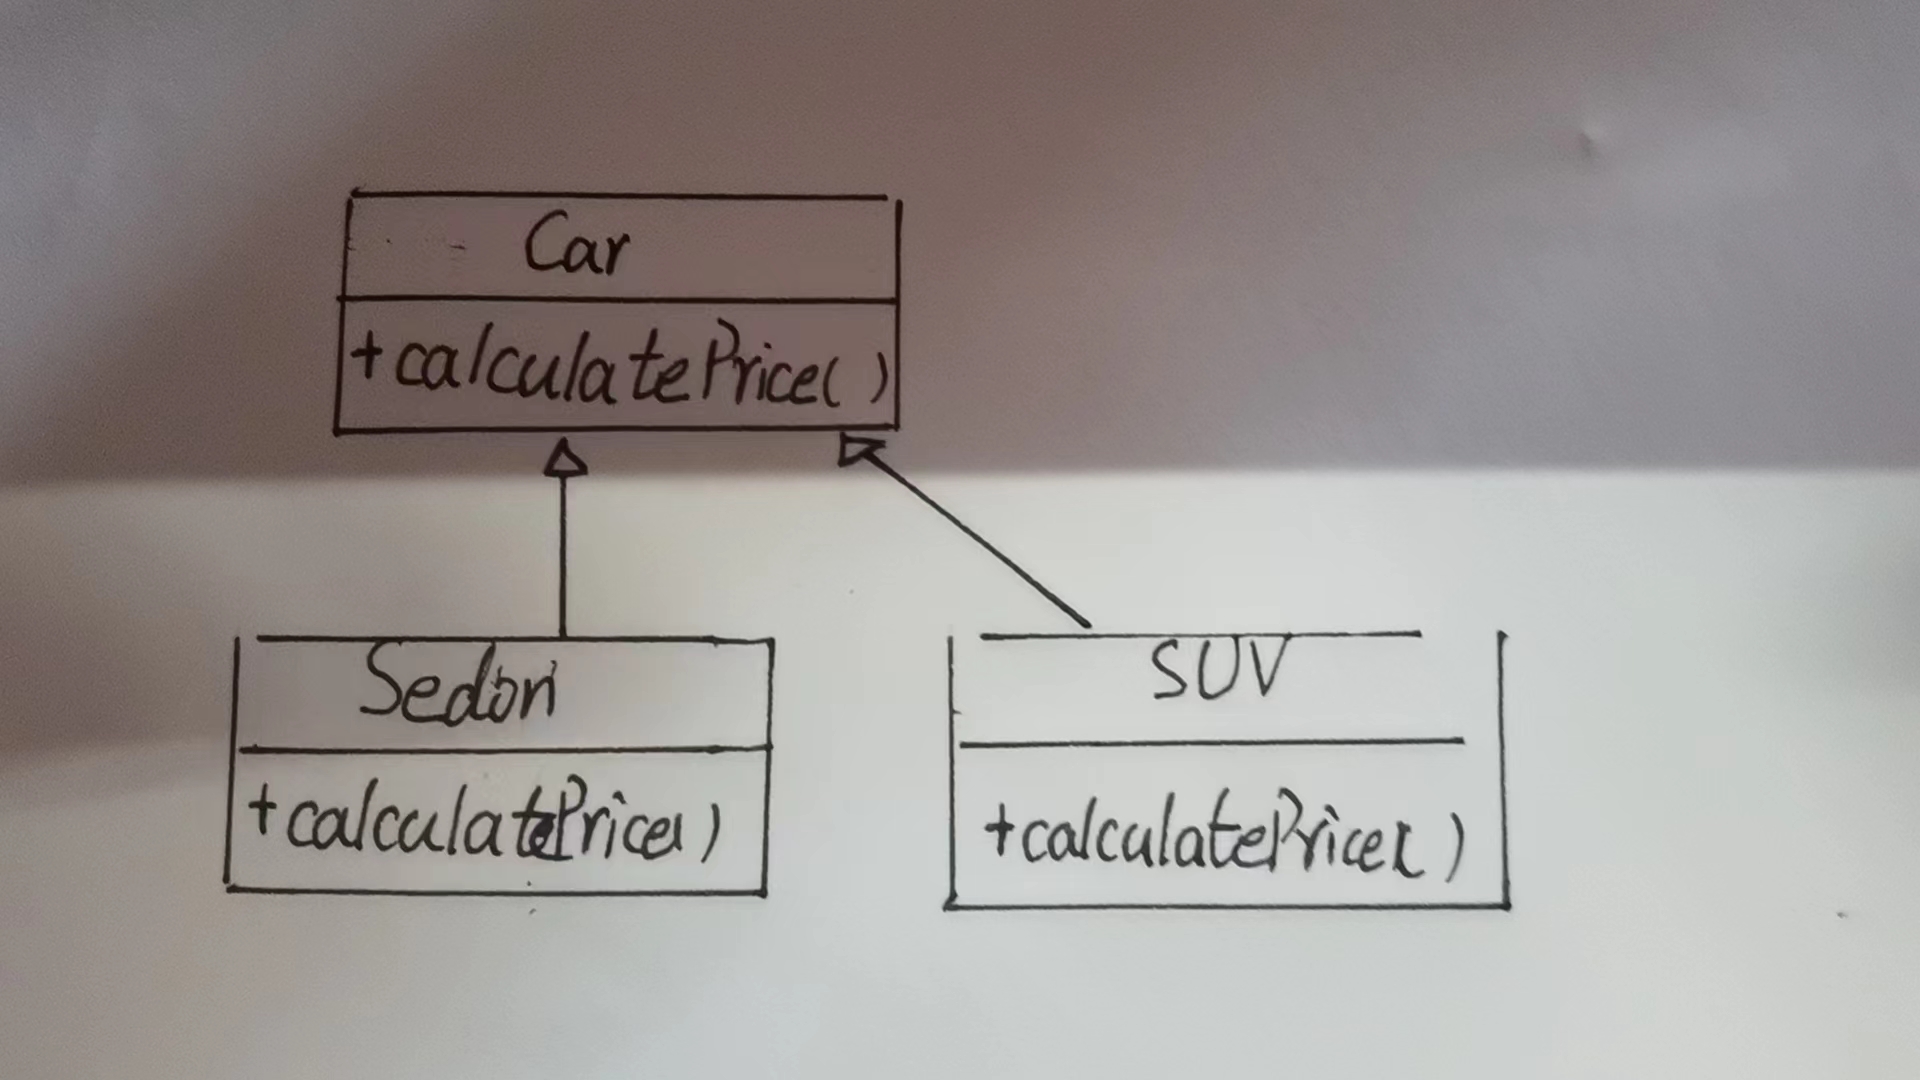 Car
+calculatePrice()
Sedan
+calculatePrice()
SUV
+calculatePrice()